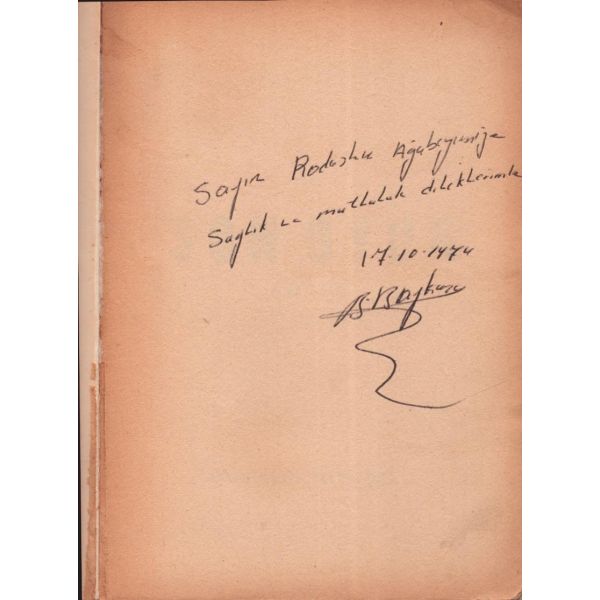 Sayın Rodoslu Ağabeyimize
Sağlık ve mutluluk dileklerimle
17.10.1974